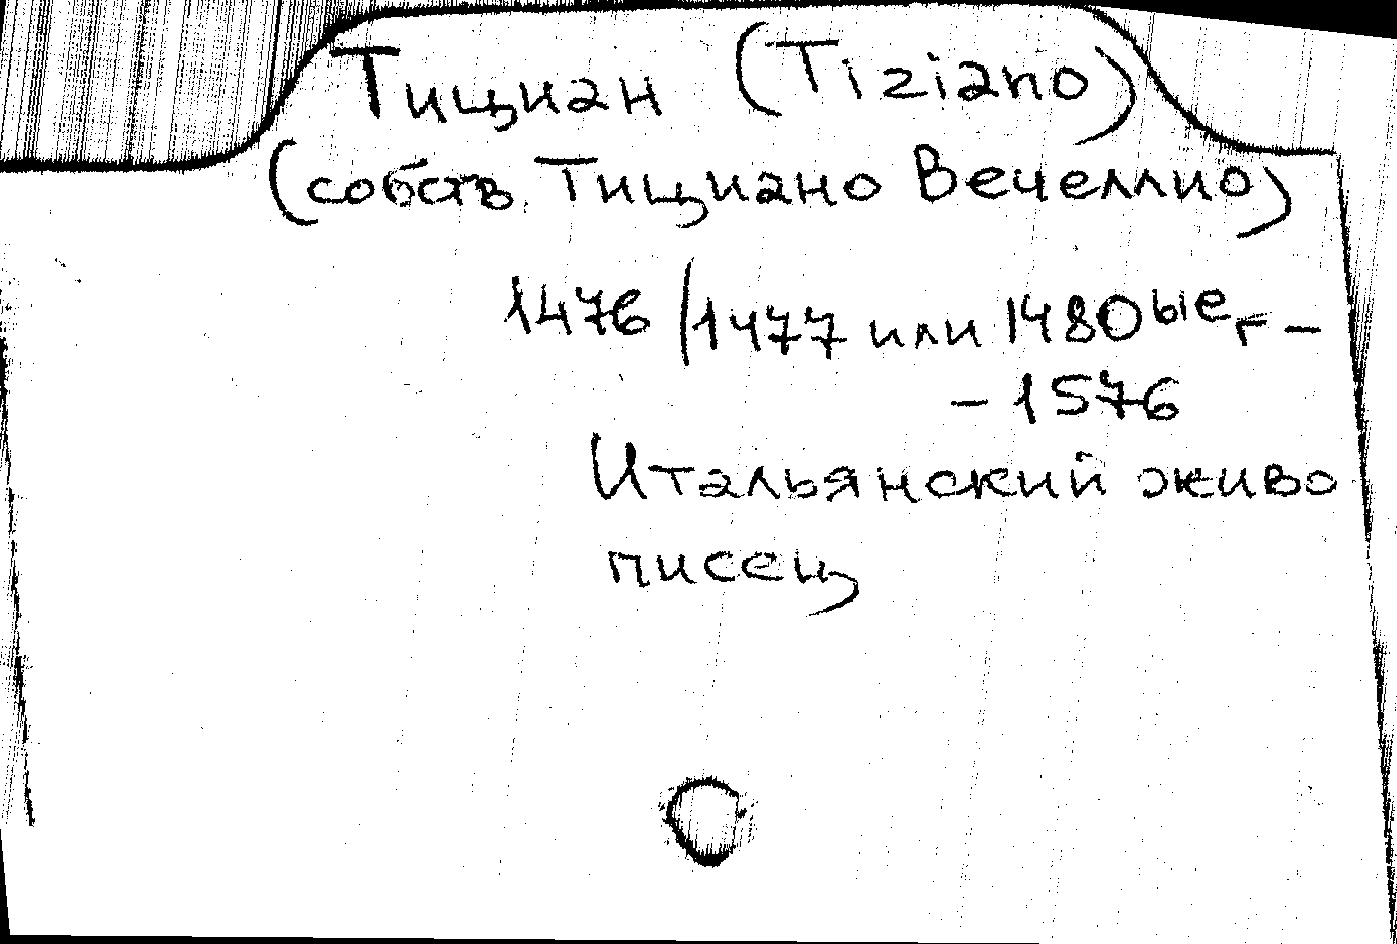 Тициан (Tiziano)
(собств. Тициано Вечеллио)
1476/1477 или 1480ые г –
– 1576
Итальянский живо
писец